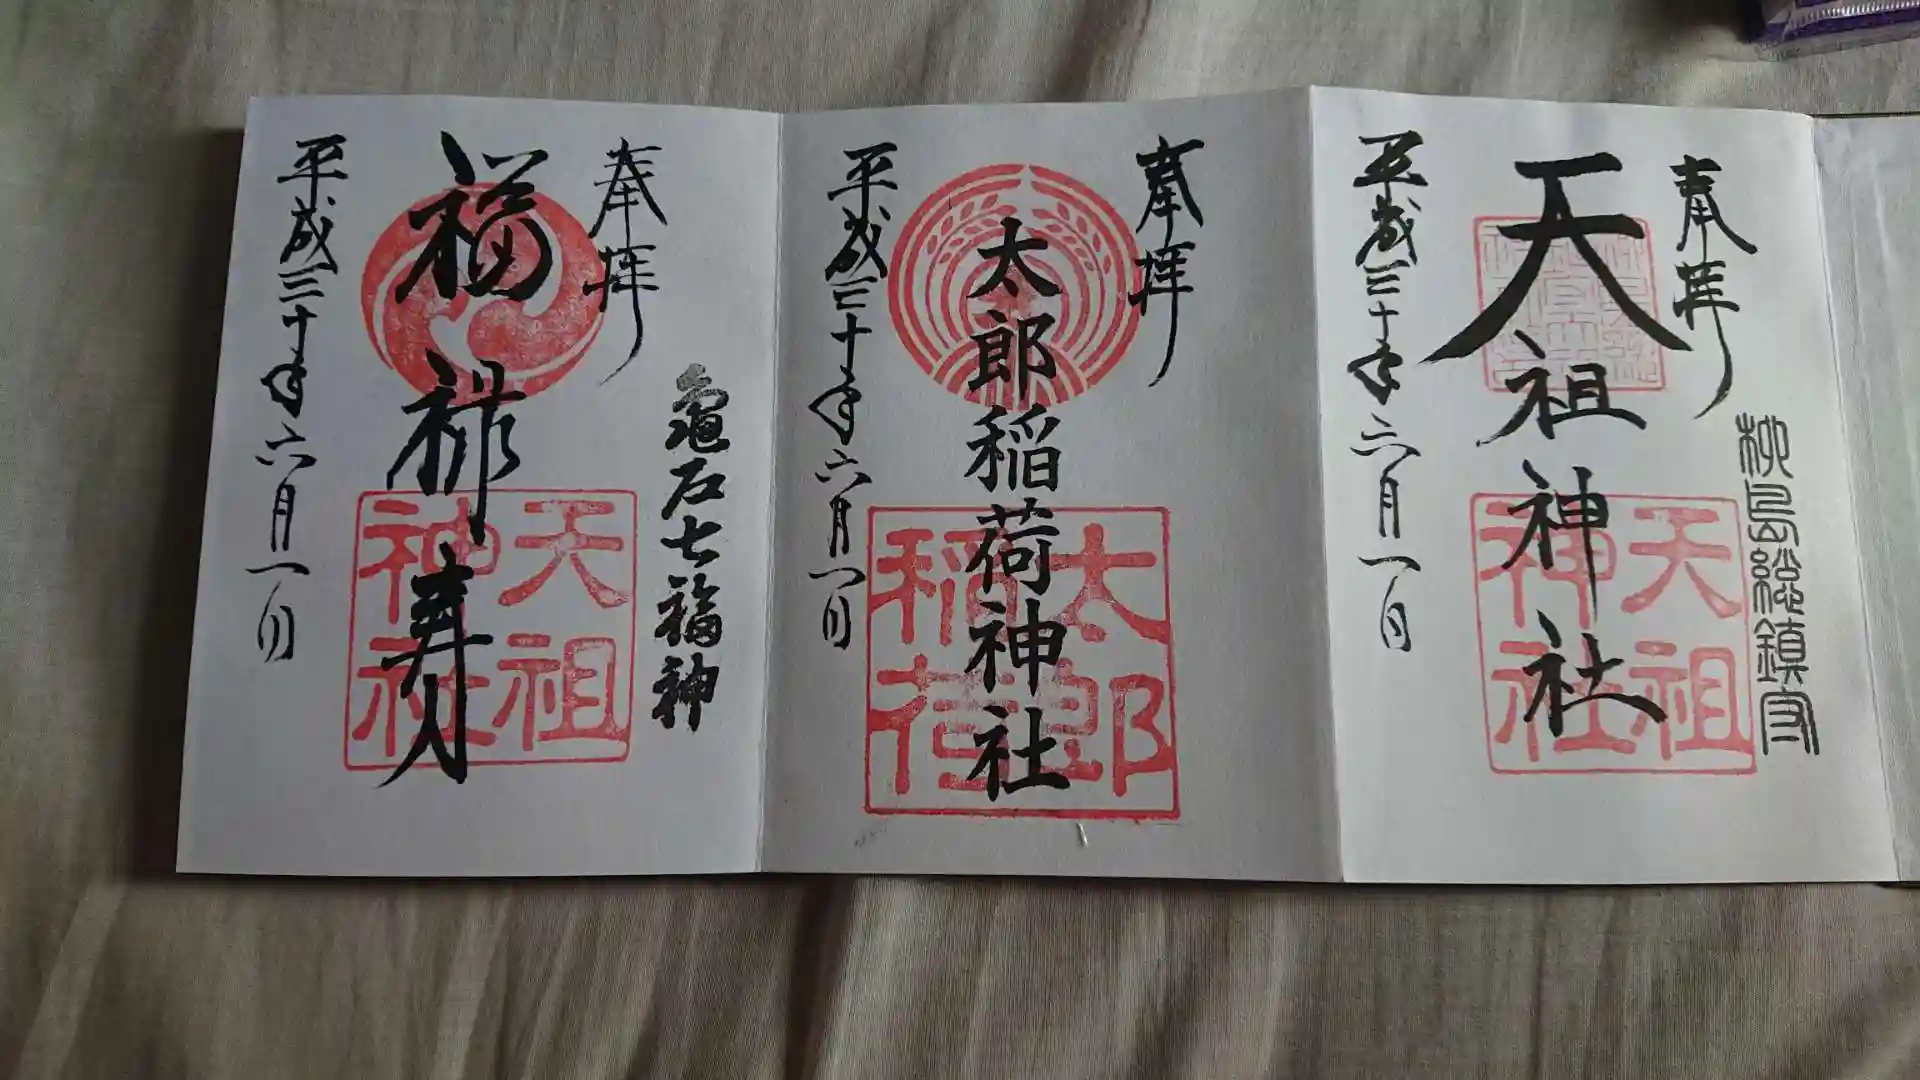 奉拝
天祖神社
柳島総鎮守
平成三十年六月一日
天祖
神社
奉拝
太郎稲荷神社
平成三十年六月一日
太郎
稲荷
奉拝
亀石七福神
福禄寿
平成三十年六月一日
天祖
神社